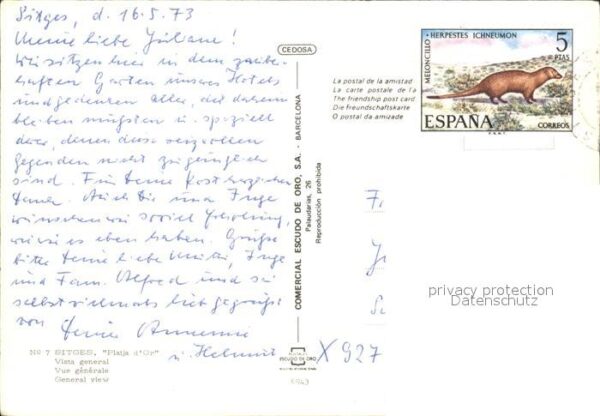 Sitges, d. 16.5.73
Meine liebe Juliane!
Wir sitzen hier in dem zauber-
haften Garten unseres Hotels
und gedenken aller, die daheim
bleiben mußten u. speziell
derer, denen diese reizvollen
Gegenden nicht zugänglich
sind. Für Deine Post herzlichen
Dank. Auch Dir und Inge
wünschen wir soviel Erholung,
wie wir es eben haben. Grüße
bitte Deine liebe Mutti, Inge
und Fam. Alfred und sei
selbst vielmals lieb gegrüßt
von Deine Annemie
u. Helmut
Nº 7 SITGES, "Platja d'Or"
Vista general
Vue générale
General view
CEDOSA
COMERCIAL ESCUDO DE ORO, S.A. - BARCELONA
Palaudarias, 26
Reproducción prohibida
ESCUDO DE ORO
X 927
La postal de la amistad
La carte postale de l'a
The friendship post card
Die freundschaftskarte
O postal da amizade
MELONCILLO - HERPESTES ICHNEUMON
5
PTAS
ESPAÑA
CORREOS
F.N.M.T.
privacy protection
Datenschutz